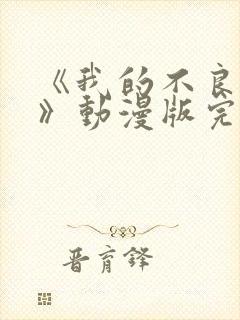 《我的不良
》動漫版完
晋育鋒